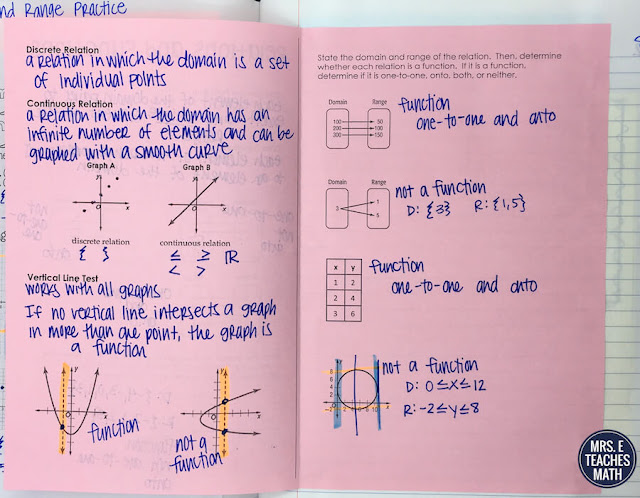 nd Range Practice
Discrete Relation
a relation in which the domain is a set
of individual points
Continuous Relation
a relation in which the domain has an
infinite number of elements and can be
graphed with a smooth curve
Graph A
Graph B
y
y
x
x
O
discrete relation
continuous relation
{ }
≤ ≥ ℝ
< >
Vertical Line Test
works with all graphs
If no vertical line intersects a graph
in more than one point, the graph is
a function
y
x
O
function
y
x
O
not a
function
State the domain and range of the relation. Then, determine
whether each relation is a function. If it is a function,
determine if it is one-to-one, onto, both, or neither.
Domain
Range
100
200
300
50
100
150
function
one-to-one and onto
Domain
Range
3
1
5
not a function
D: {3} R: {1,5}
x y
1 2
2 4
3 6
function
one-to-one and onto
y
8
6
4
2
x
not a function
D: 0≤x≤12
R: -2≤y≤8
MRS. E
TEACHES
MATH